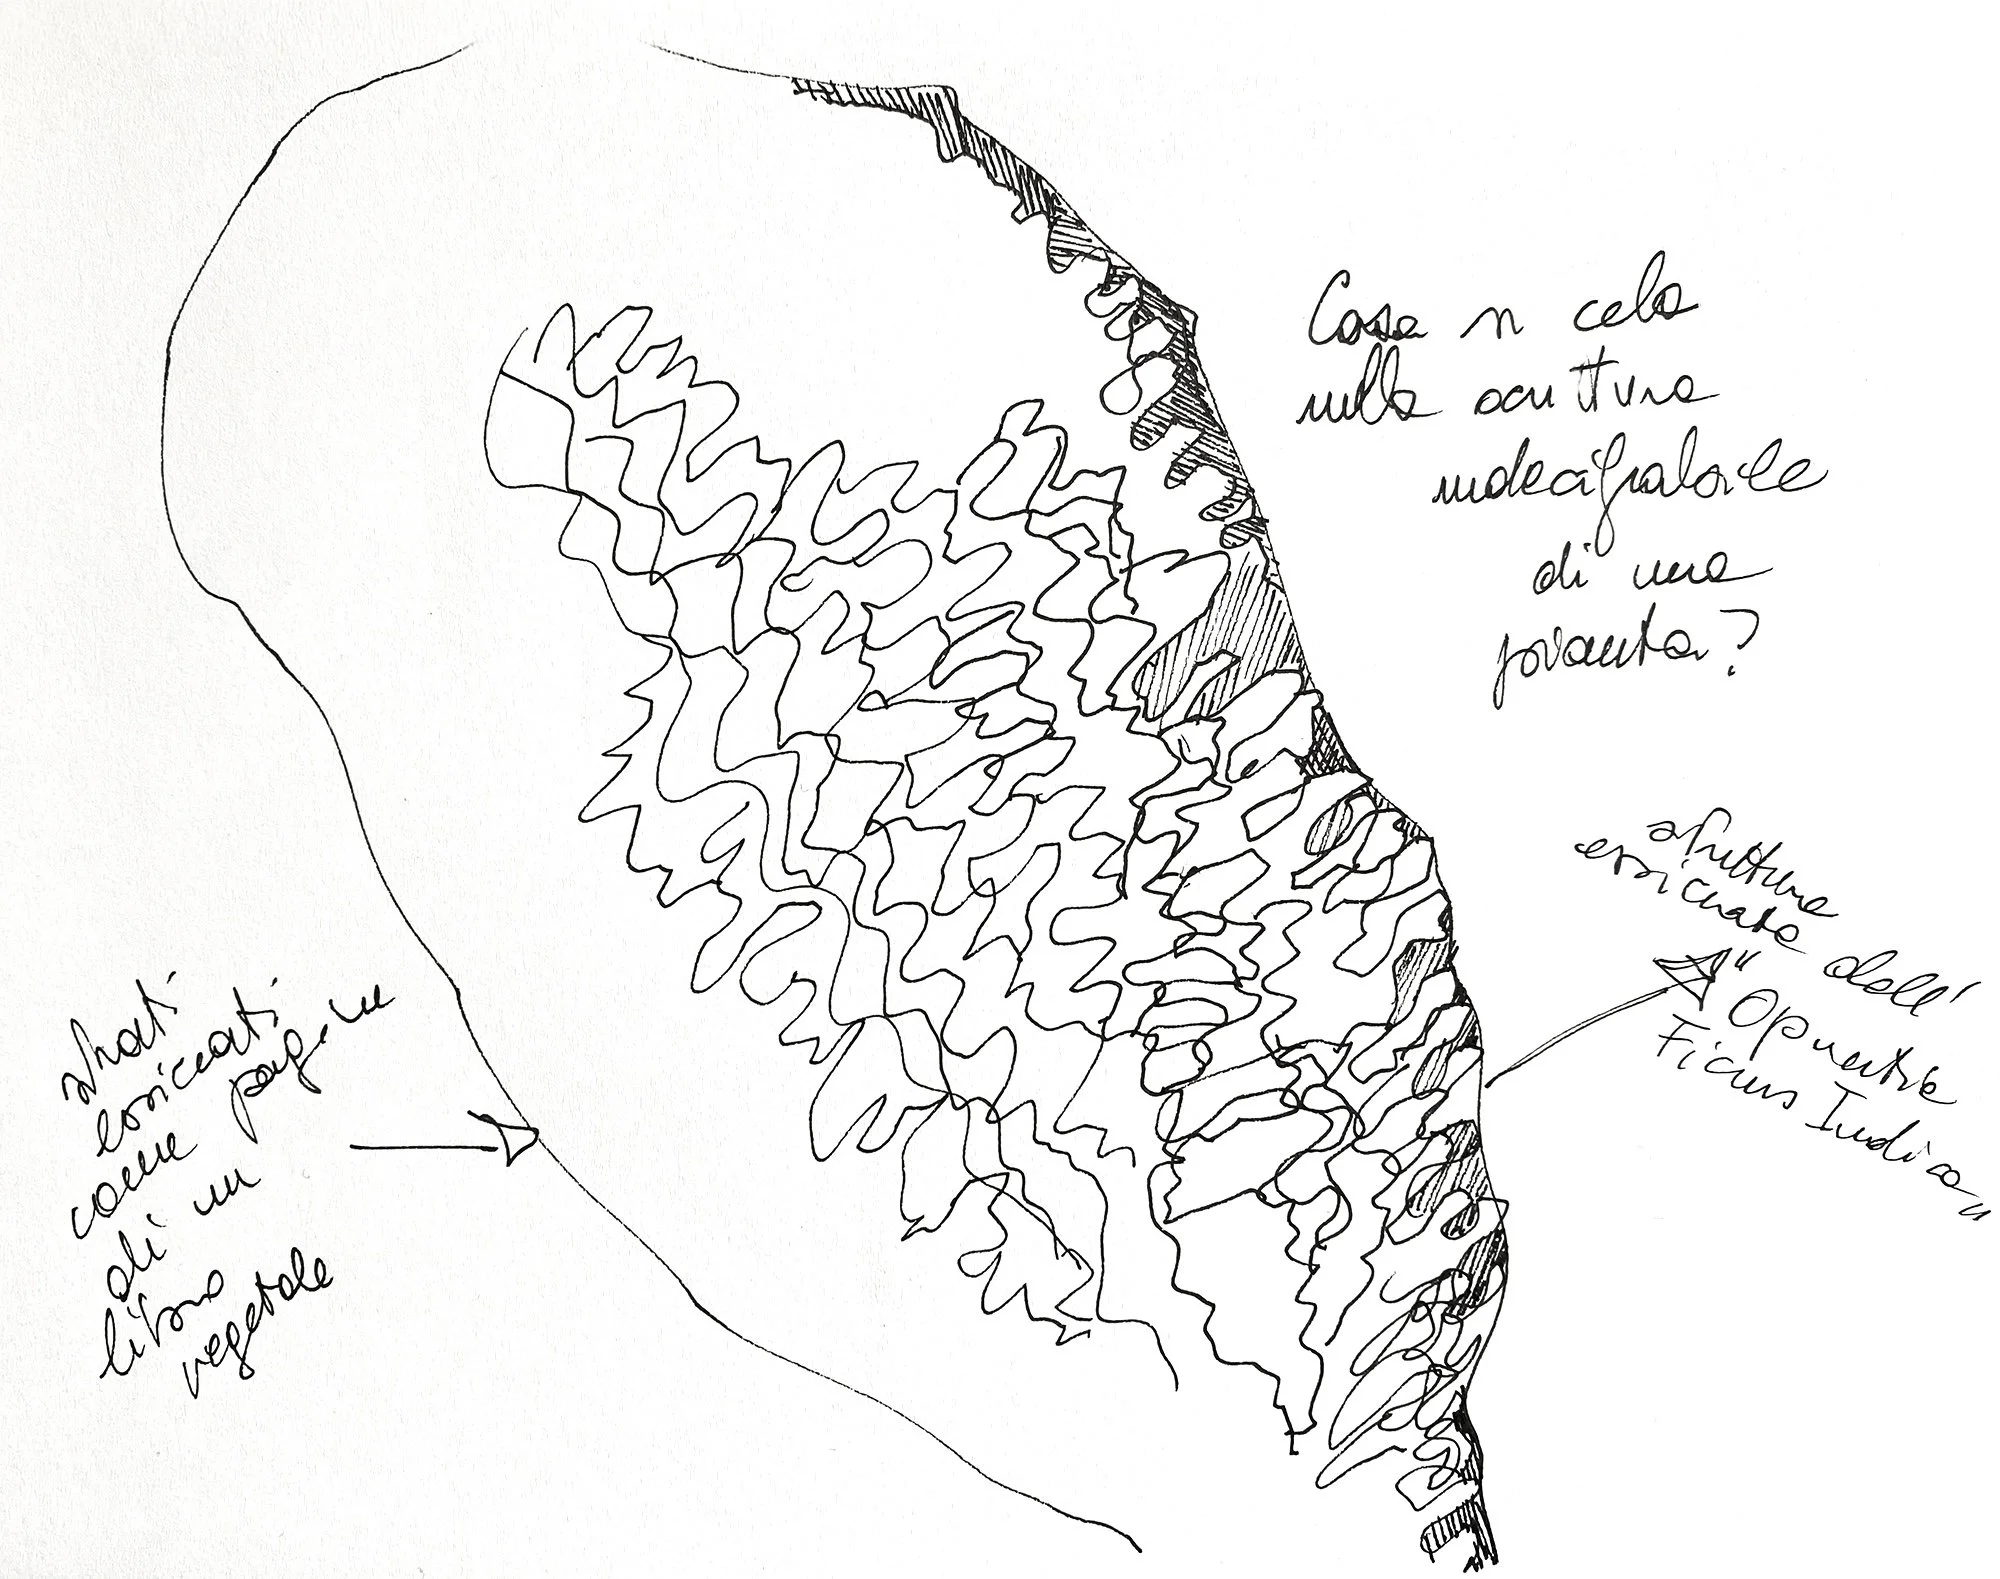 Cosa si cela
nella scrittura
indecifrabile
di una
pianta?
strutture
essicate dell'
"Opuntia
Ficus Indica"
strati
essiccati
come pagine
di un
libro
vegetale